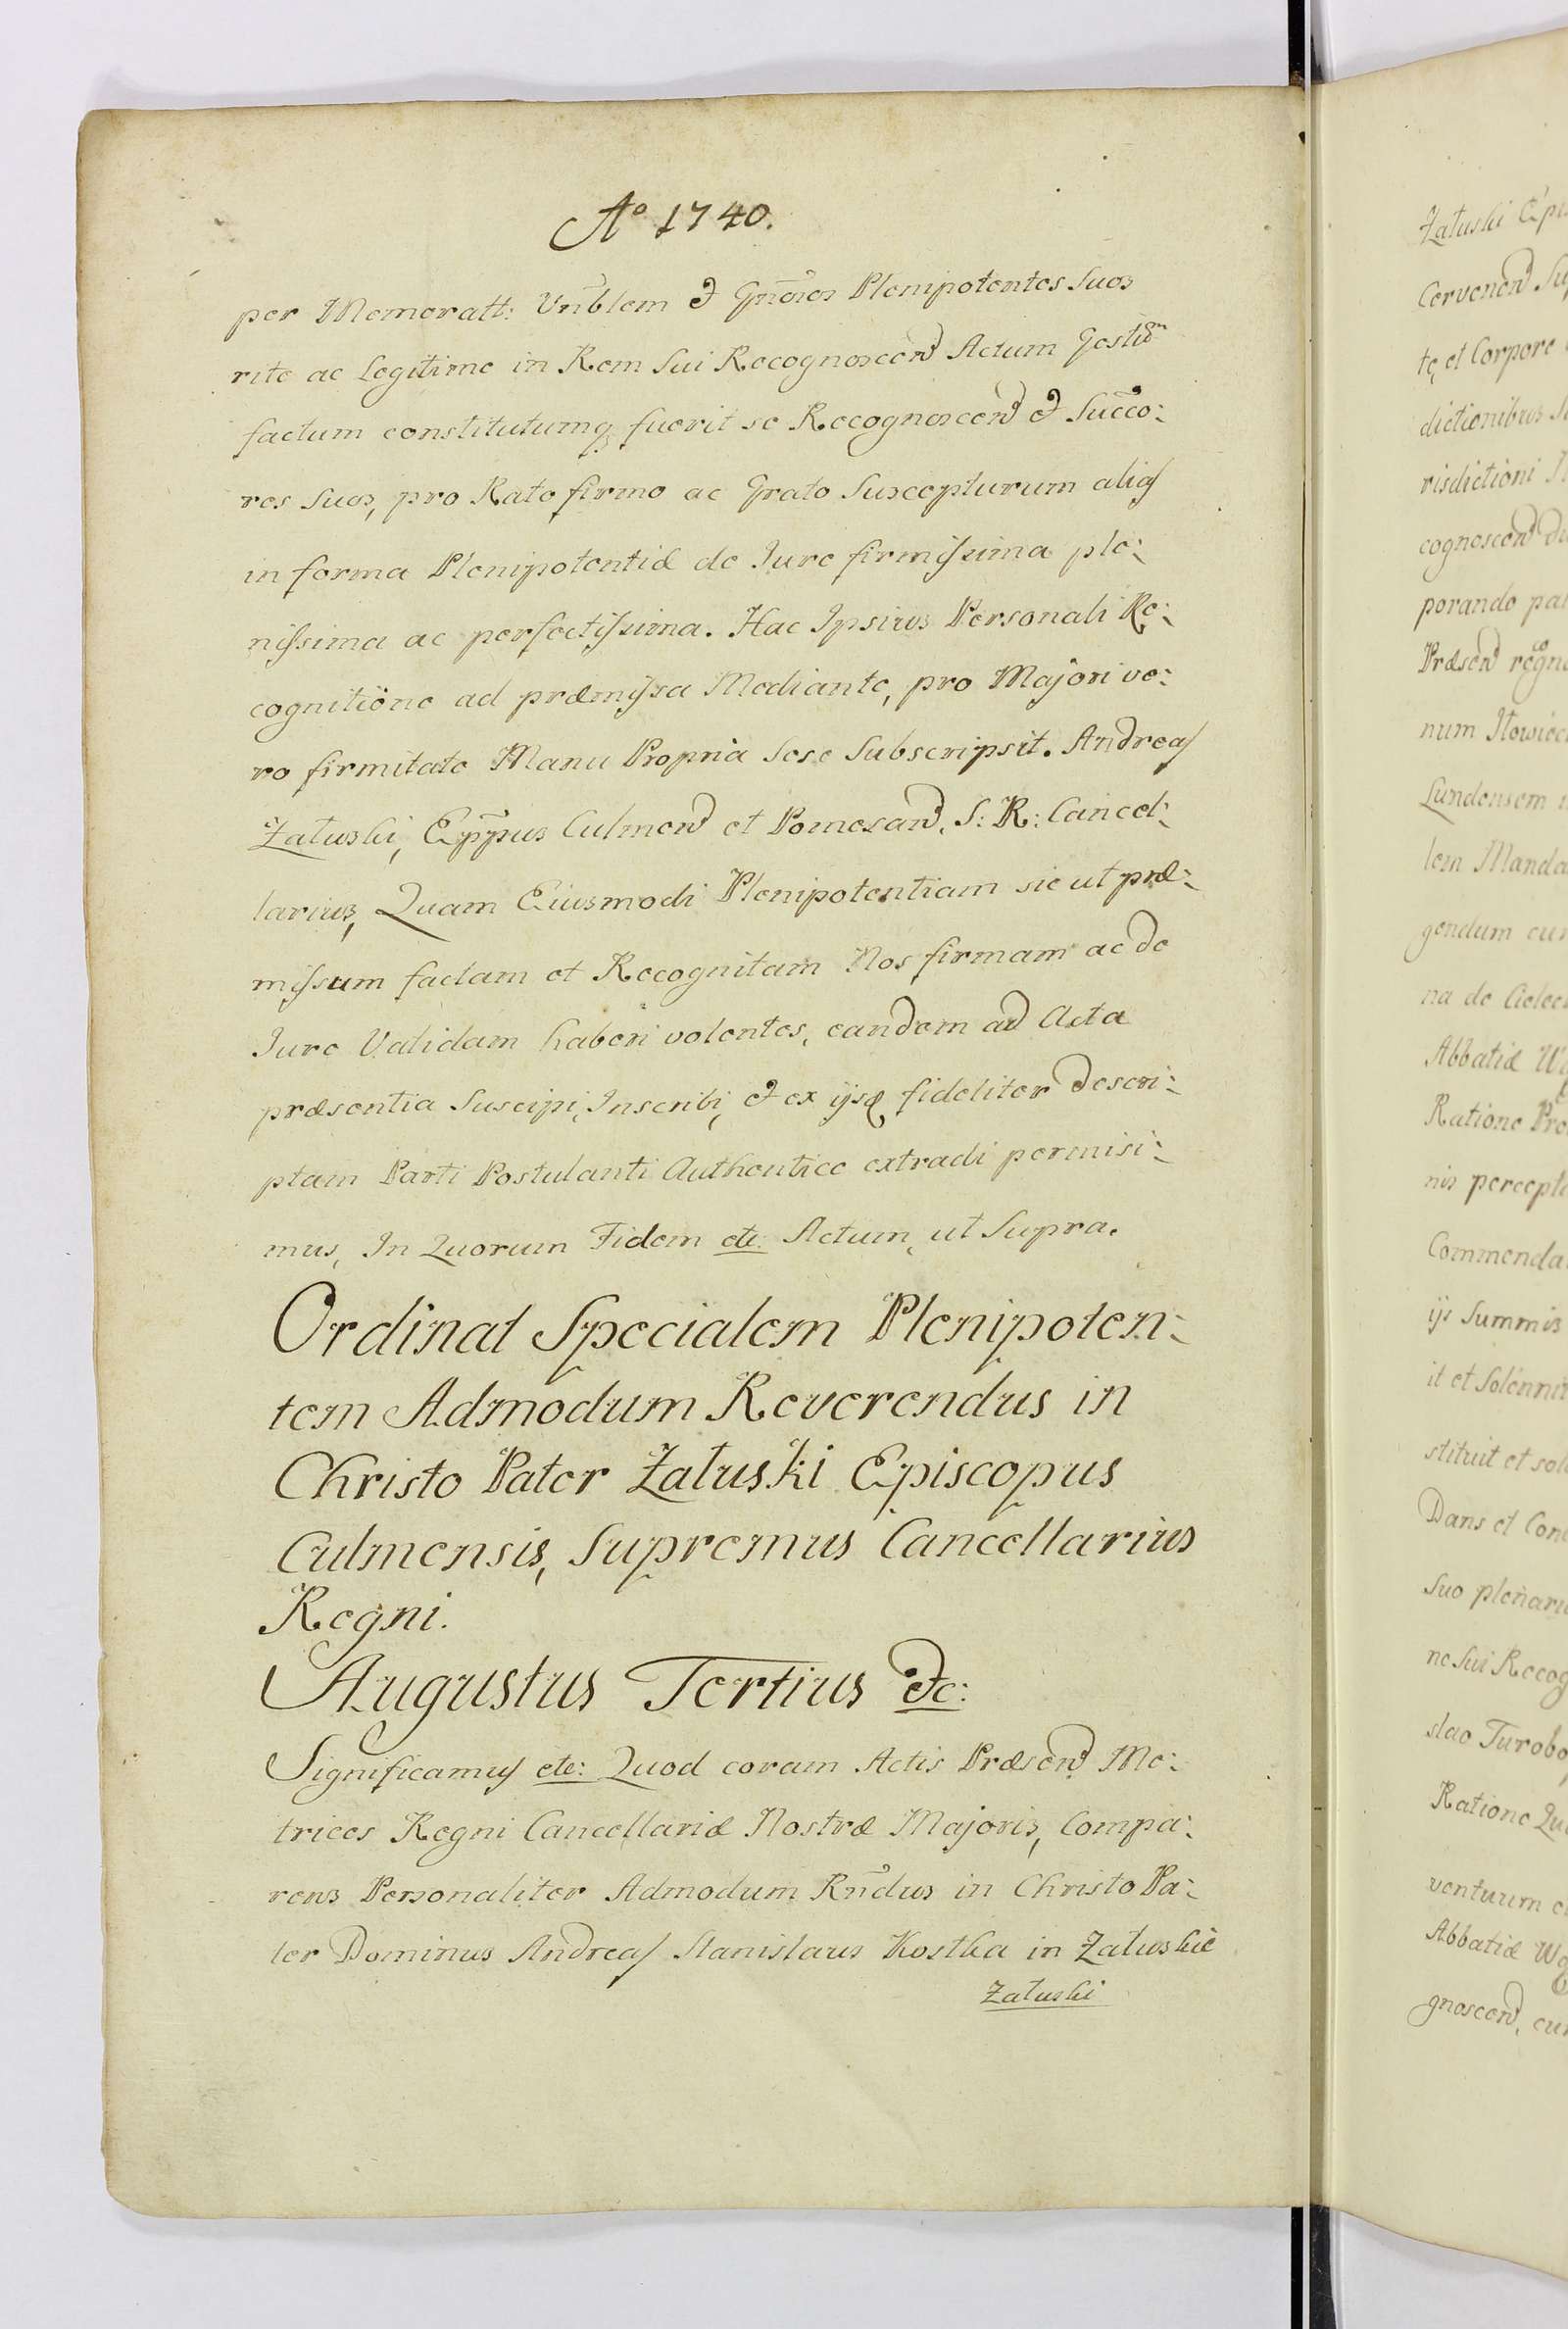 Aº 1740.
per Memoratt: Vñblem & Gnõsos Plenipotentes Suos
rite ac Legitime in Rem Sui Recognoscen̄ Actum Gestum
factum constitutumq fuerit se Recognoscen̄ & Succo:
res Suos, pro Rato firmo ac Grato Suscepturum alias
in forma Plenipotentiæ de Jure firmissima ple:
nissima ac perfectissima. Hac Ipsius Personali Re:
cognitione ad præmissa Mediante, pro Majori ve:
ro firmitate Manu Propria Sese Subscripsit. Andreas
Załuski, Epp̄us Culmen̄ et Pomesan̄. S: R: Cancel:
larius, Quam Eiusmodi Plenipotentiam sic ut præ:
missum factam et Recognitam Nos firmam ac de
Jure Validam haberi volentes, eandem ad Acta
præsentia Suscipi, Inscribi, & ex ijsd fideliter descri:
ptam Parti Postulanti Authentice extradi permisi:
mus, In Quorum Fidem etc: Actum, ut Supra.
Ordinat Specialem Plenipoten:
tem Admodum Reverendus in
Christo Pater Załuski Episcopus
Culmensis, Supremus Cancellarius
Regni.
Augustus Tertius &c:
Significamus etc: Quod coram Actis Præsen̄ Me:
trices Regni Cancellariæ Nostræ Majoris, Compa:
rens Personaliter Admodum Rñdus in Christo Pa:
ter Dominus Andreas Stanislaus Kostka in Załuskie
Załuski
Załuski
Cervenen̄
te, et Corpore
dictionibus
risdictioni
cognoscen̄
porando
Præsen̄
num
Lundensem
lem
gendum
na de
Abbatiæ
Ratione
nis
ijs Summis
it et
stituit et
Dans et
Suo
ne Sui
slao
Ratione
ventuum
Abbatiæ
gnoscen̄.